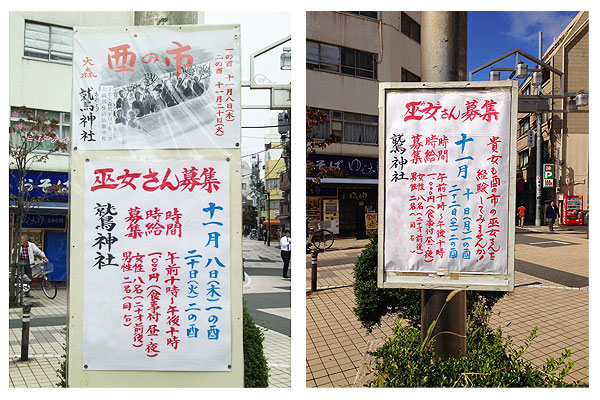 一の酉 十一月八日(木)
二の酉 十一月二十日(火)
酉の市
大森
鷲神社
巫女さん募集
十一月 八日(木)一の酉
二十日(火)二の酉
時間 午前十時〜午後十時
時給 一〇〇〇円(食事付昼・夜)
募集 女性 八名(二十才前後)
男性 二名(〃)
鷲神社
そば
巫女さん募集
貴女も酉の市の巫女さんを
経験してみませんか
十一月 十日(月)一の酉
二十二日(土)二の酉
時間 午前十時〜午後十時
時給 一〇〇〇円(食事付昼・夜)
募集 女性 八名(二十才前後)
男性 二名(〃)
鷲神社
そば
P